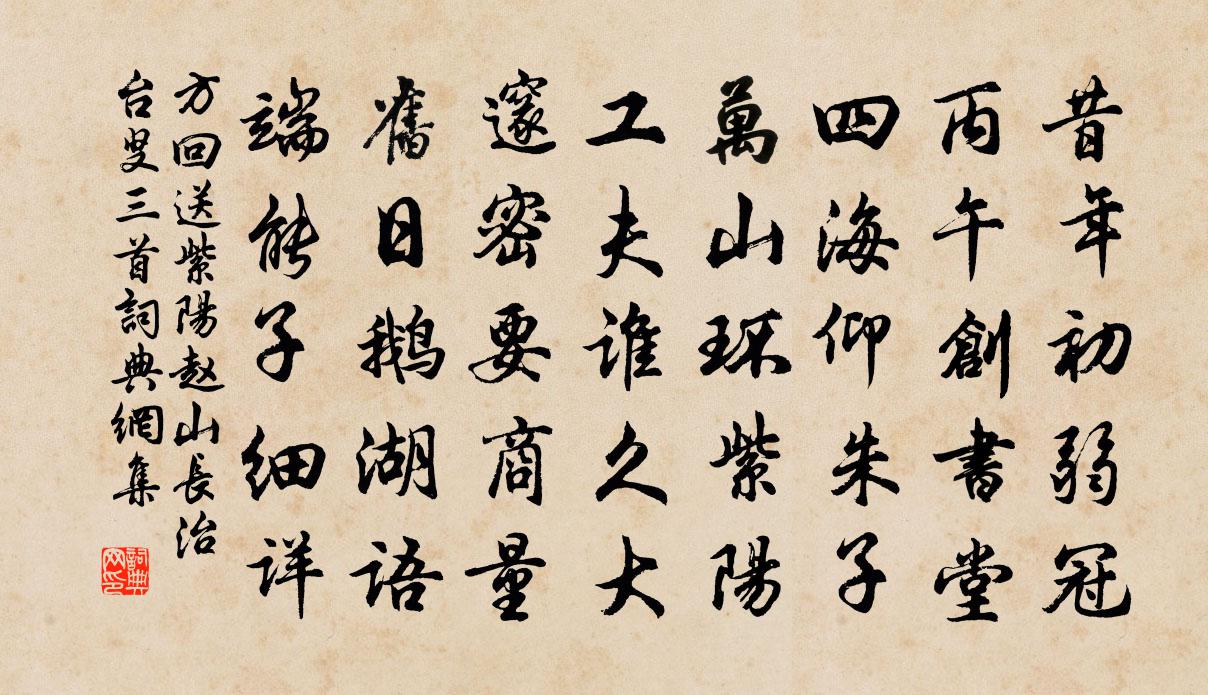 昔年初弱冠
丙午創書堂
四海仰朱子
萬山环紫陽
工夫谁久大
邃密要商量
舊日鹅湖语
端能子细详
方回送紫陽赵山長治
台叟三首詞典網集
詞典网印